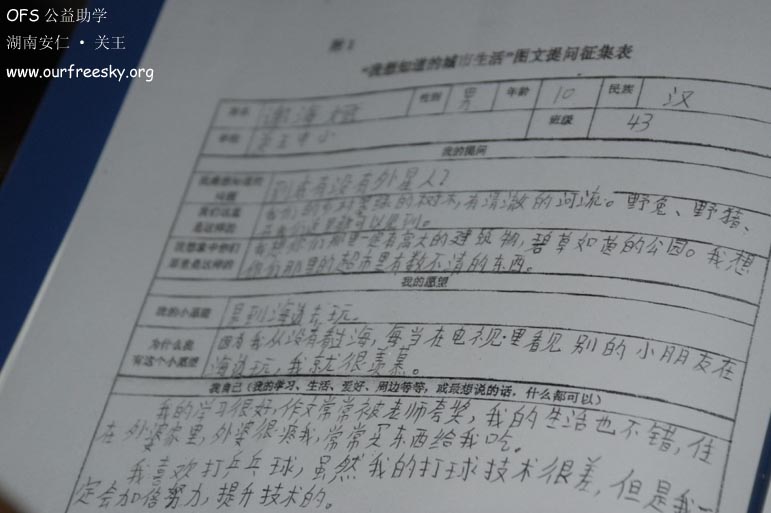 OFS 公益助学
湖南安仁 • 关王
www.ourfreesky.org
附 1
“我想知道的城市生活”图文提问征集表
姓名 谢海 性别 男 年龄 10 民族 汉
学校 关王中小 班级 43
我的提问
我最想知道的
问题
到底有没有外星人?
我们这里
是这样的
我们的乡村 的树木,有清澈的河流。野兔、野猪、
我想象中你们
那里是这样的
我想你们那里一定有高大的建筑物,碧草如茵的公园。我想
你们那里的超市里有数不清的东西。
我的愿望
我的小愿望
是到海边去玩。
为什么我
有这个小愿望
因为我从没有看过海,每当在电视里看见别的小朋友在
海边玩,我就很羡慕。
我自己(我的学习、生活、爱好、周边等等,或最想说的话,什么都可以)
我的学习很好,作文常常被老师夸奖,我的生活也不错,住
在外婆家里,外婆很疼我,常常买东西给我吃。
我喜欢打乒乓球,虽然我的打球技术很差,但是我一
定会加倍努力,提升技术的。